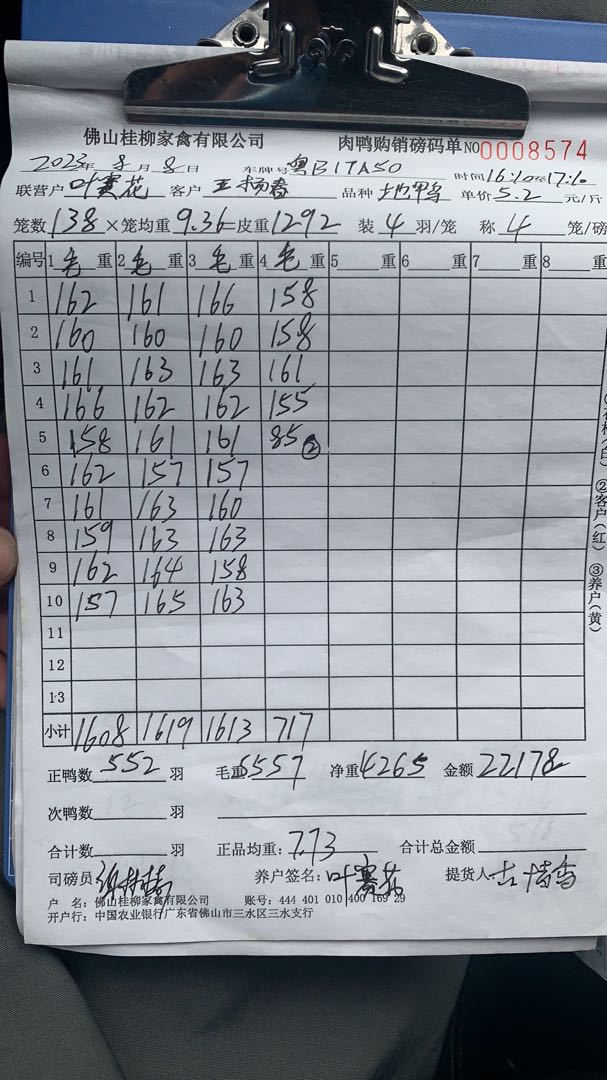 佛山桂柳家禽有限公司 肉鸭购销磅码单 NO 0008574
2023年 8月 8日 车牌号 粤B1TA50 时间 16:10至17:10
联营户 叶赛花 客户 王扬春 品种 单价 5.2 元/斤
笼数 138 ×笼均重 9.36=皮重 1292 装 4 羽/笼 称 4 笼/磅
编号 1毛重 2毛重 3毛重 4毛重 5 重 6 重 7 重 8 重
1 162 161 166 158
2 160 160 160 158
3 161 163 163 161
4 166 162 162 155
5 158 161 161 85②
6 162 157 157
7 161 163 160
8 159 163 163
9 162 164 158
10 157 165 163
11
12
13
小计 1608 1619 1613 717
正鸭数 552 羽 毛重 6557 净重 4265 金额 22178
次鸭数 羽
合计数 羽 正品均重: 7.73 合计总金额
司磅员 养户签名: 叶赛花 提货人
户 名: 佛山桂柳家禽有限公司 账号: 444 401 010 400 169 29
开户行: 中国农业银行广东省佛山市三水区三水支行
②客户(红) ③养户(黄)